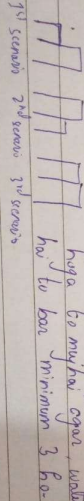 hoga to mujhai agar
hai to bar minimum 3 ho-
1st scenario 2nd scenario 3rd scenario